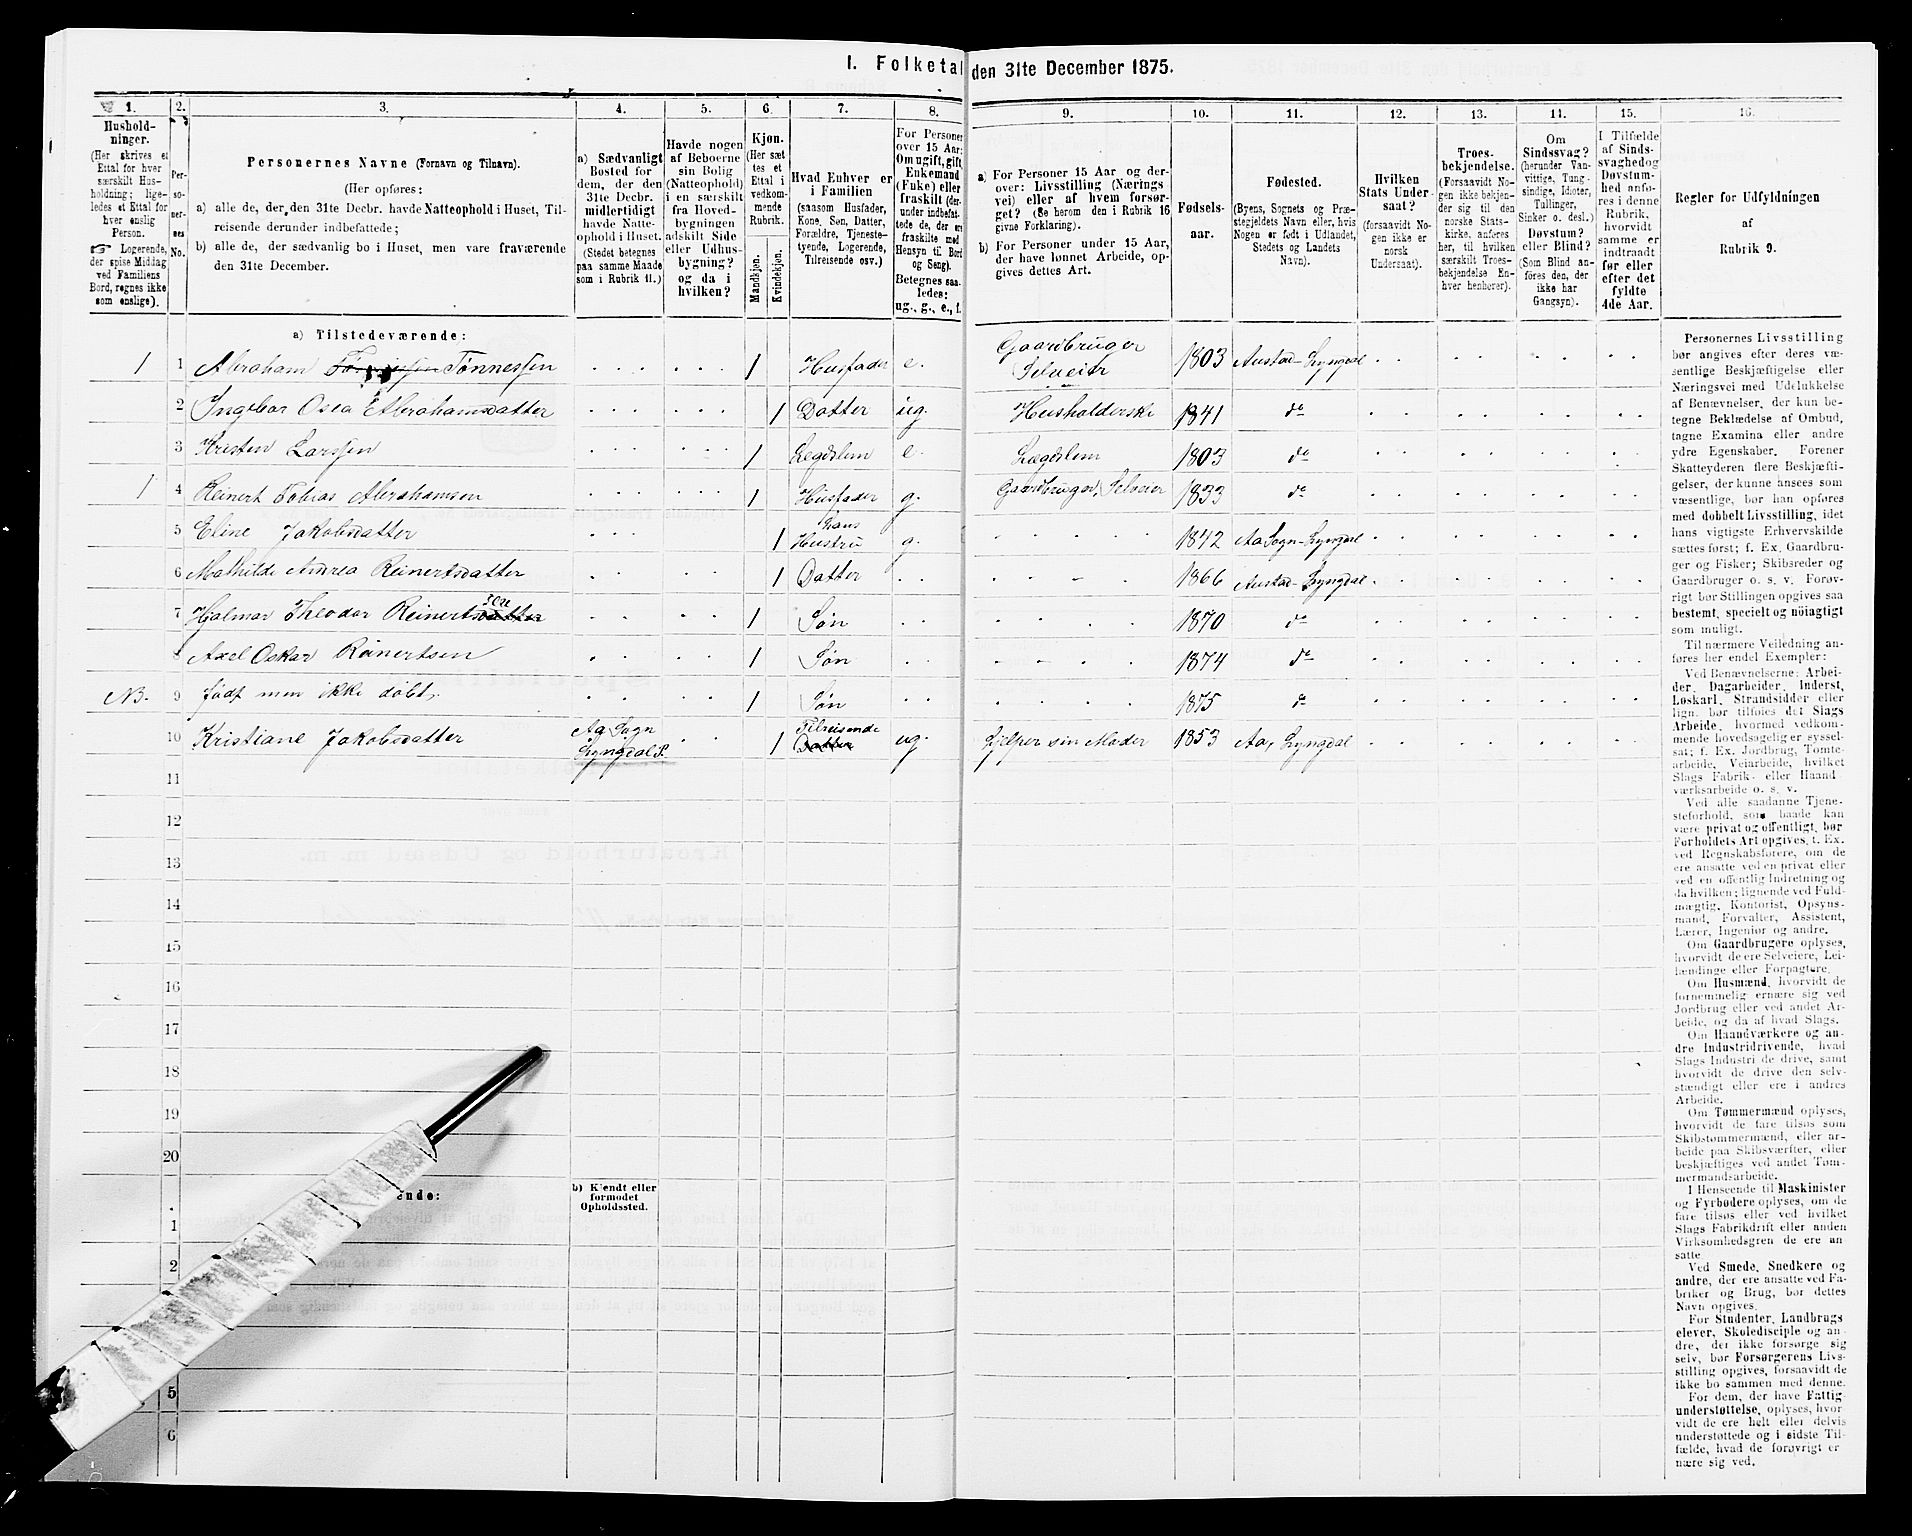 I. Folketal den 31te December 1875.
1.
Hushold-
ninger.
(Her skrives et
Ettal for hver
særskilt Hus-
holdning; lige-
ledes et Ettal for
hver enslig
Person.
☞ Logerende,
der spise Middag
ved Familiens
Bord, regnes ikke
som enslige).
2.
Per-
so-
ner-
nes
No.
3.
Personernes Navne (Fornavn og Tilnavn).
(Her opføres:
a) alle de, der den 31te Decbr. havde Natteophold i Huset, Til-
reisende derunder indbefattede;
b) alle de, der sædvanlig bo i Huset, men vare fraværende
den 31te December.
4.
a) Sædvanligt
Bosted for
dem, der den
31te Decbr.
midlertidigt
havde Natte-
ophold i Huset.
(Stedet betegnes
paa samme Maade
som i Rubrik 11.)
5.
Havde nogen
af Beboerne
sin Bolig
(Natteophold)
i en særskilt
fra Hoved-
bygningen
adskilt Side
eller Udhus-
bygning?
og da i
hvilken?
6.
Kjøn.
(Her sæt
et
Ettal i
vedkom-
mende
Rubrik.
Mandkjøn.
Kvindekjøn.
7.
Hvad Enhver er
i Familien
(saasom Husfader,
Kone, Søn, Datter,
Forældre, Tjeneste-
tyende, Logerende,
Tilreisende osv.)
8.
For Personer
over 15 Aar:
Om ugift, gift,
Enkemand
(Enke) eller
fraskilt (der-
under indbefat-
tede de, der ere
fraskilte med
Hensyn til Bord
og Seng).
Betegnes saa-
ledes:
ug., g., e., f.
9.
a) For Personer 15 Aar og der-
over: Livsstilling (Nærings
vei) eller af hvem forsør-
get? (Se herom den i Rubrik 16
givne Forklaring).
b) For Personer under 15 Aar,
der have lønnet Arbeide, op-
gives dettes Art.
10.
Fødsels-
aar.
11.
Fødested.
(Byens, Sognets og Præ-
stegjeldets Navn eller, hvis
Nogen er født i Udlandet,
Stedets og Landets
Navn).
12.
Hvilken
Stats Under-
saat?
(forsaavidt No-
gen ikke er
norsk
Undersaat).
13.
Troes-
bekjendelse.
(Forsaavidt No-
gen ikke bekjen-
der sig til den
norske Stats-
kirke, anføres
her, til hvilken
særskilt Troes-
bekjendelse En-
hver henhører).
14.
Om
Sindssvag?
(herunder Van-
vittige, Tung-
sindige, Idioter,
Tullinger,
Sinker o. desl.)
Døvstum?
eller Blind?
(Som Blind an-
føres den, der
ikke har
Gangsyn).
15.
I Tilfælde
af Sinds-
svaghed og
Døvstum-
hed anfø-
res i denne
Rubrik,
hvorvidt
samme er
indtraadt
før eller
efter det
fyldte
4de Aar.
16.
Regler for Udfyldningen
af
Rubrik 9.
a) Tilstedeværende:
1 1 Abraham Tønnessen 1 Husfader e. Gaardbruger Selveier 1803 Austad-Lyngdal
2 Ingebor Osea Abrahamsdatter 1 Datter ug. Husholderske 1841 do
3 Kristen Larssen 1 Legdslem e. Lægdslem 1803 do
1 4 Reinert Tobias Abrahamsen 1 Husfader g. Gaardbruger, Selveier 1833 do
5 Eline Jakobsdatter 1 hans Hustru g. 1842 Aa Sogn-Lyngdal
6 Mathilde Andrea Reinertsdatter 1 Datter 1866 Austad-Lyngdal
7 Hjalmar Theodor Reinertsdatter sen 1 Søn 1870 do
8 Axel Oskar Reinertsen 1 Søn 1874 do
NB. 9 født men ikke døbt, 1 Søn 1875 do
10 Kristiane Jakobsdatter Aa Sogn Lyngdal P. 1 Tilreisende Datter ug. hjelper sin Moder 1853 Aa, Lyngdal
11
12
13
14
15
16
17
18
19
20
ende:
b) Kjendt eller
formodet
Opholdssted.
1
2
5
6
Personernes Livsstilling
bør angives efter deres væ-
sentlige Beskjæftigelse eller
Næringsvei med Udelukkelse
af Benævnelser, der kun be-
tegne Beklædelse af Ombud,
tagne Examina eller andre
ydre Egenskaber. Forener
Skatteyderen flere Beskjæfti-
gelser, der kunne ansees som
væsentlige, bør han opføres
med dobbelt Livsstilling, idet
hans vigtigste Erhvervskilde
sættes først; f. Ex. Gaardbru-
ger og Fisker; Skibsreder og
Gaardbruger o. s. v. Forøv-
rigt bør Stillingen opgives saa
bestemt, specielt og nöiagtigt
som muligt.
Til nærmere Veiledning an-
føres her endel Exempler:
Ved Benævnelserne: Arbei-
der, Dagarbeider, Inderst,
Løskarl, Strandsidder eller
lign. bør tilføies det Slags
Arbeide, hvormed vedkom-
mende hovedsagelig er syssel-
sat; f. Ex. Jordbrug, Tomte-
arbeide, Veiarbeide, hvilket
Slags Fabrik- eller Haand-
værksarbeide o. s. v.
Ved alle saadanne Tjene-
steforhold, som baade kan
være privat og offentligt, bør
Forholdets Art opgives, f. Ex.
ved Regnskabsførere, om de
ere ansatte ved en privat eller
ved en offentlig Indretning og
da hvilken; lignende ved Fuld-
mægtig, Kontorist, Opsyns-
mand, Forvalter, Assistent,
Lærer, Ingeniør og andre.
Om Gaardbrugere oplyses,
hvorvidt de ere Selveiere, Lei-
lændinge eller Forpagtere.
Om Husmænd, hvorvidt de
fornemmelig ernære sig ved
Jordbrug eller ved andet Ar-
beide, og da af hvad Slags.
Om Haandværkere og an-
dre Industridrivende, hvad
Slags Industri de drive, samt
hvorvidt de drive den selv-
stændigt eller ere i andres
Arbeide.
Om Tømmermænd oplyses,
hvorvidt de fare tilsøs som
Skibstømmermænd, eller ar-
beide paa Skibsværfter, eller
beskjæftiges ved andet Tøm-
mermandsarbeide.
I Henseende til Maskinister
og Fyrbødere oplyses, om de
fare tilsøs eller ved hvilket
Slags Fabrikdrift eller anden
Virksomhedsgren de ere an-
satte.
Ved Smede, Snedkere og
andre, der ere ansatte ved Fa-
briker og Brug, bør dettes
Navn opgives.
For Studenter, Landbrugs-
elever, Skoledisciple og an-
dre, der ikke forsørge sig
selv, bør Forsørgerens Livs-
stilling opgives, forsaavidt de
ikke bo sammen med denne.
For dem, der have Fattig-
understøttelse, oplyses, hvor-
vidt de ere helt eller delvis
understøttede og i sidste Til-
fælde, hvad de forøvrigt er-
nære sig ved.